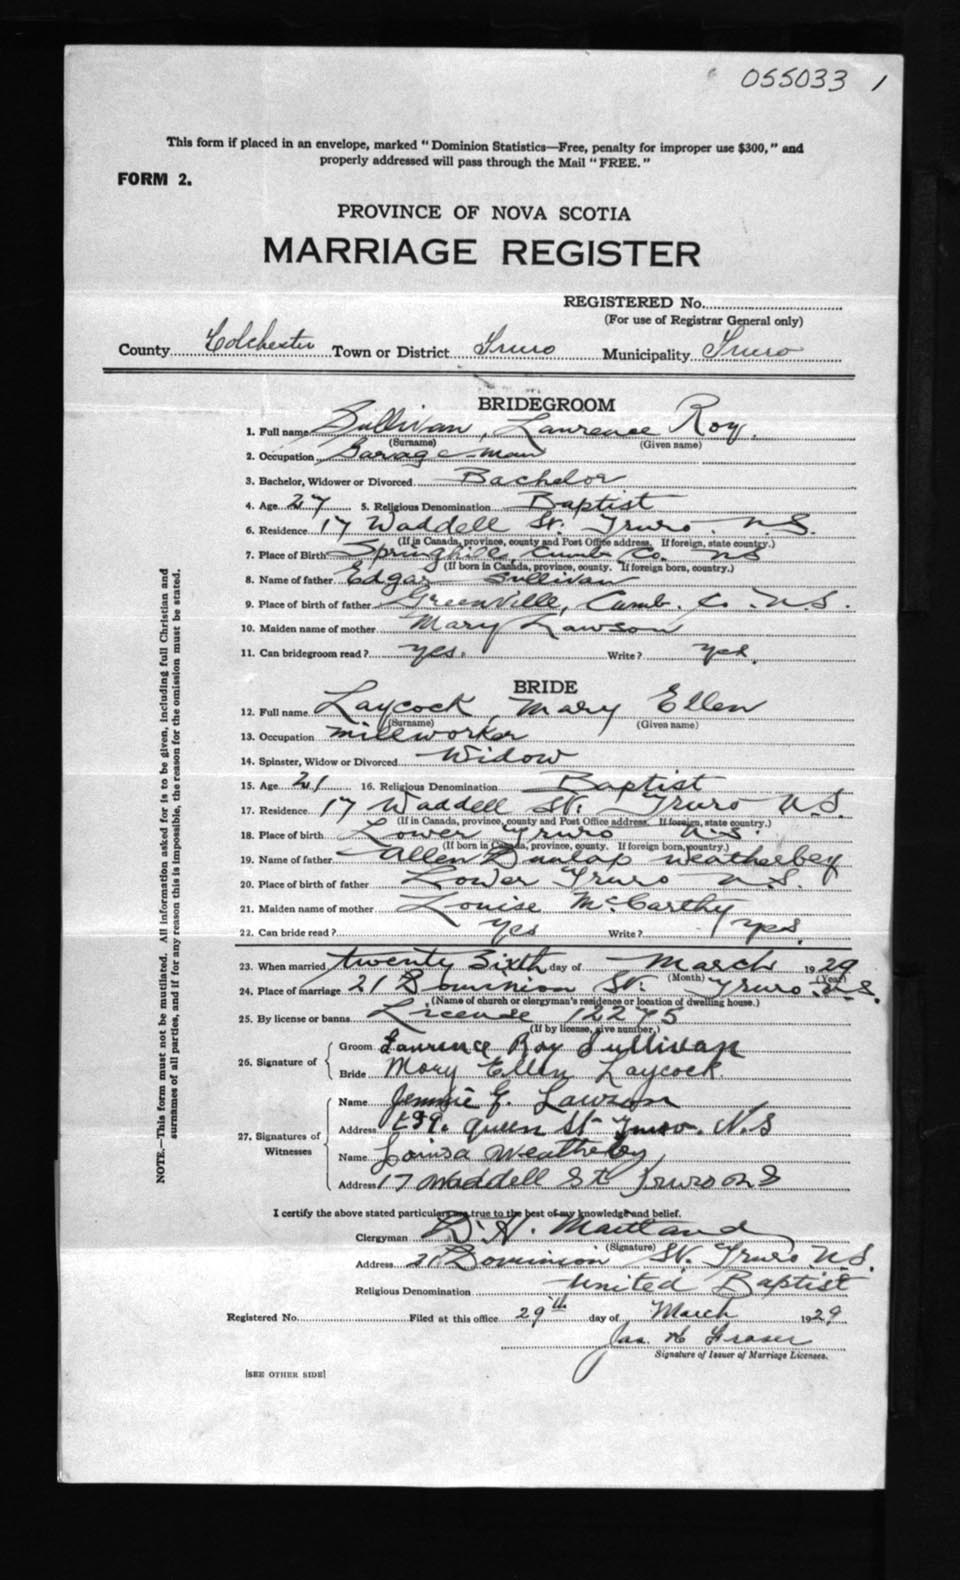 055033 1
This form if placed in an envelope, marked "Dominion Statistics—Free, penalty for improper use $300," and
properly addressed will pass through the Mail "FREE."
FORM 2.
PROVINCE OF NOVA SCOTIA
MARRIAGE REGISTER
REGISTERED No.
(For use of Registrar General only)
County Colchester Town or District Truro Municipality Truro
BRIDEGROOM
1. Full name Sullivan, Lawrence Roy.
(Surname) (Given name)
2. Occupation Garage man
3. Bachelor, Widower or Divorced Bachelor
4. Age 27 5. Religious Denomination Baptist
6. Residence 17 Waddell St. Truro. N.S.
(If in Canada, province, county and Post Office address. If foreign, state country.)
7. Place of Birth Springhill, Cumb. Co. NS
(If born in Canada, province, county. If foreign born, country.)
8. Name of father Edgar Sullivan
9. Place of birth of father Greenville, Cumb. Co. N.S.
10. Maiden name of mother Mary Lawson
11. Can bridegroom read? yes. Write? yes.
BRIDE
12. Full name Laycock, Mary Ellen
(Surname) (Given name)
13. Occupation millworker
14. Spinster, Widow or Divorced Widow
15. Age 21 16. Religious Denomination Baptist
17. Residence 17 Waddell St. Truro N.S.
(If in Canada, province, county and Post Office address. If foreign, state country.)
18. Place of birth Lower Truro N.S.
(If born in Canada, province, county. If foreign born, country.)
19. Name of father Allen Dunlap Weatherbey
20. Place of birth of father Lower Truro N.S.
21. Maiden name of mother Louise McCarthy
22. Can bride read? Yes Write? yes.
23. When married twenty sixth day of March 1929
(Month) (Year)
24. Place of marriage 21 Dominion St. Truro N.S.
(Name of church or clergyman's residence or location of dwelling house.)
25. By license or banns License 12275
(If by license, give number.)
26. Signature of
Groom Lawrence Roy Sullivan
Bride Mary Ellen Laycock.
27. Signatures of Witnesses
Name Jennie E. Lawson
Address Queen St Truro. N.S
Name Louisa Weatherby
Address 17 Waddell St Truro N S
I certify the above stated particulars are true to the best of my knowledge and belief.
Clergyman D. H. Maitland
(Signature)
Address 21 Dominion St. Truro N.S.
Religious Denomination United Baptist
Registered No. Filed at this office 29th day of March 1929
Jas. H Fraser
Signature of Issuer of Marriage Licenses.
[SEE OTHER SIDE]
NOTE.—This form must not be mutilated. All information asked for is to be given, including full Christian and
surnames of all parties, and if for any reason this is impossible, the reason for the omission must be stated.